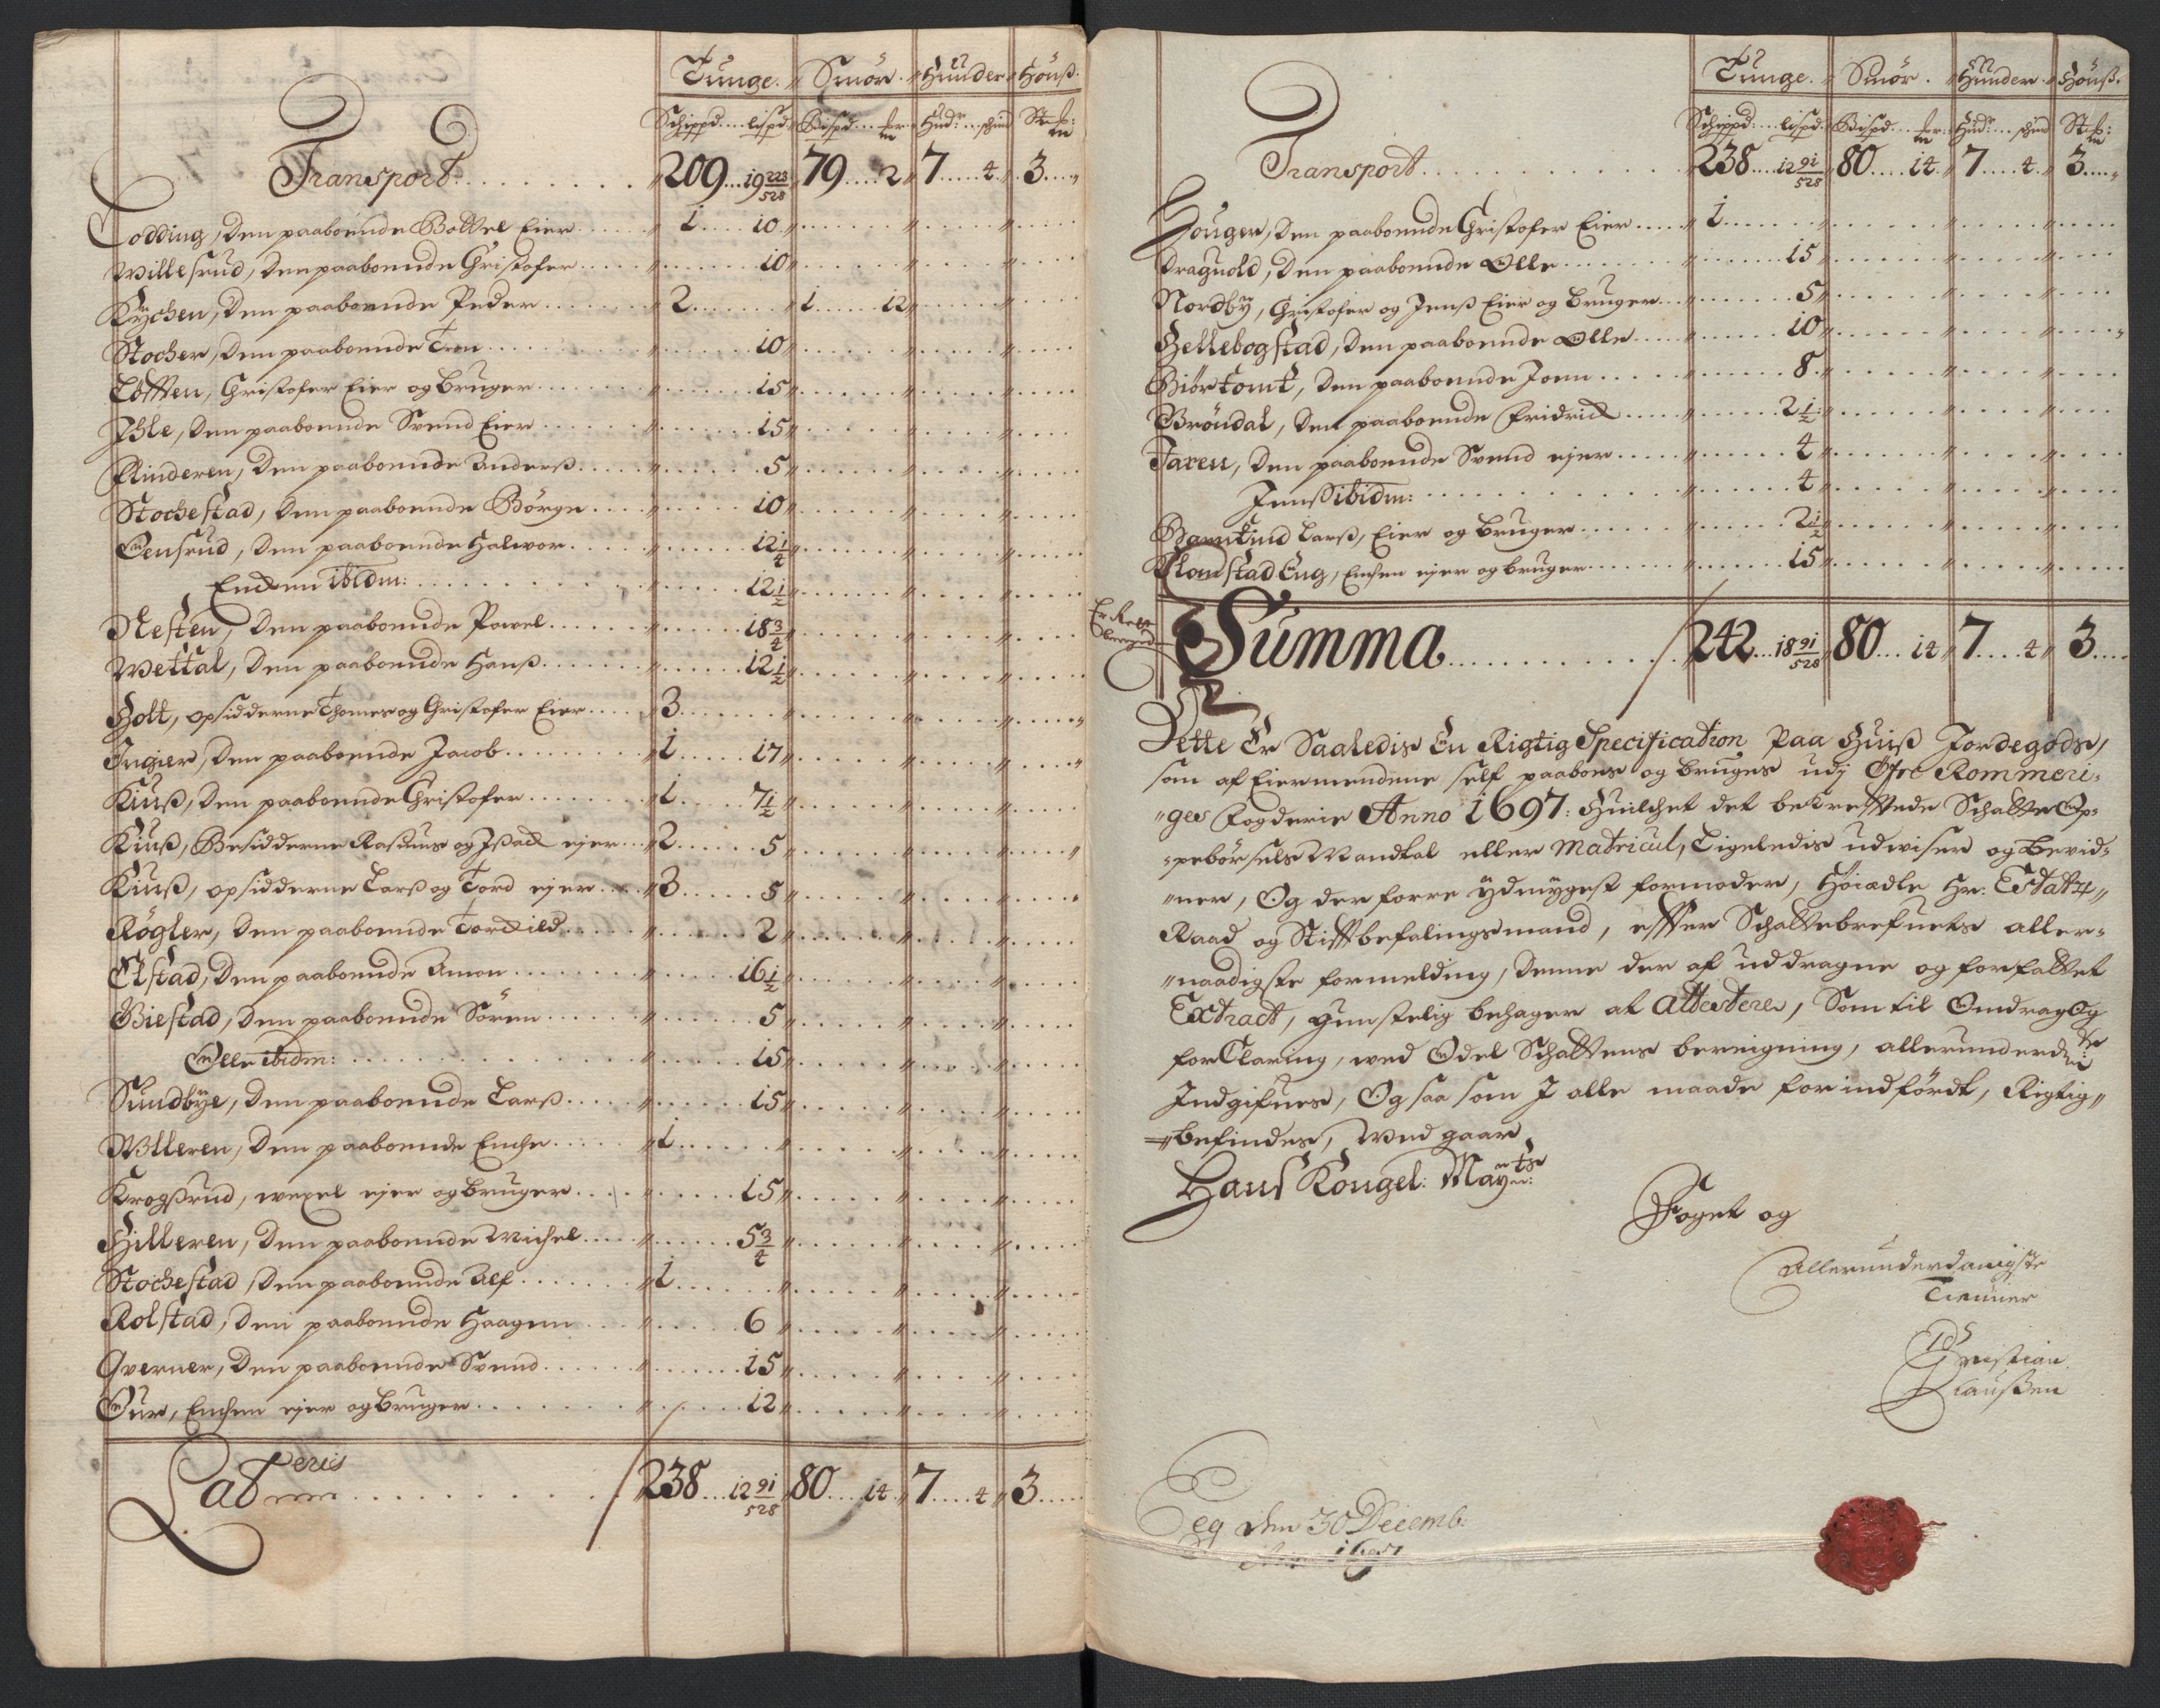 Tunge. Smör. Hunder Höuß.
Schippd....lispd. Bispd....  Hudr....schind Stk:
Transport. 209...19 223/528 79....2 7.....4. 3....
Lodding, den paaboende Bottel Eier 1....10
Willesrud, den paaboende Christofer 10
Kÿchen, den paaboende Peder 2 1......12
Stocher, den paaboende 10
Löfften, Christofer Eier og bruger 15
Ihle, den paaboende Svend Eier 15
Flinderen, den paaboende Anderß 5
Stochestad, den paaboende Börge 10
Eensrud, den paaboende Halvor 12 1/4
Endten ibidm: 12 1/2
Nesten, den paaboende Povel 18 3/4
Wettal, den paaboende Hanß 12 1/2
Holt, opsidderne Thomes og Christofer Eier 3
Ingier, den paaboende Jacob 1.....17
Kiuß, den paaboende Christofer 1.....7 1/2
Kiuß, Besidderne Rasmus og Isack ejer 2.....5
Kiuß, opsidderne Larß og Tord ejer 3.....5
Rögler, den paaboende Torkild 2
Elstad, den paaboende Amon 16 1/2
Biestad, den paaboende Sören 5
Olle ibidm: 15
Sundbÿe, den paaboende Larß 15
Wlleren, den paaboende Enche 1
Krogßrud, wexel ejer og bruger 15
Hilleren, den paaboende Michel 5 3/4
Stochestad, den paaboende Alf 1
Rolstad, den paaboende Haagen 6
Qverner, den paaboende Svend 15
Our, Enchen ejer og bruger 12
Lateris 238...12 91/528 80....14 7....4 3.....
Tunge. Smör. Hunder Höuß.
Schippd:....lispd. Bispd....  Hudr....schind Stk:
Transport 238....12 91/528 80....14 7....4. 3....
Houger, den paaboende Christofer Eier 1
Draguold, den paaboende Olle 15
Nordbÿ, Christofer og Jenß Eier og bruger 5
Hellebogstad, den paaboende Olle 10
Biörtomt, den paaboende Joen 8
Bröndal, den paaboende Fridrich 2 1/2
Jaren, den paaboende Svend ejer 4
Jenß ibidm: 4
Larß, Eier og bruger 2 1/2
Flomstad Eng, Enchen ejer og bruger 15
Er Rett
Summa 242...18 91/528 80...14 7....4 3....
Dette Er Saaledis En Rigtig Specification Paa Huiß Jordegods,
som af Eiermendene self paaboes og bruges udj Öfre Rommeri-
ges Fogderie Anno 1697: Huilchet det bekrefftede Schatte Op-
pebörsels Mandtal eller Matricul, Ligeledis udviser og bevid-
ner, Og der forre ÿdmygest formoder, Höiædle Hr: Estatz
Raad og Stiftbefalingsmand, effter Schattebrefuets aller-
naadigste formelding, denne der af uddragne og forfattet
Extract, gunstelig behager at Attestere, Som til Omdrag Og
forClaring, ved Odel Schattens bereigning, allerunderd:
Indgifues, Og saa som J alle maade for indfördt, Rigtig
befindes, Ved gaar
Hans Kongel: Maÿts
Foget og
Allerunderdanigste
Tienner
Christian
Claußen
Eeg den 30 Decemb:
1697